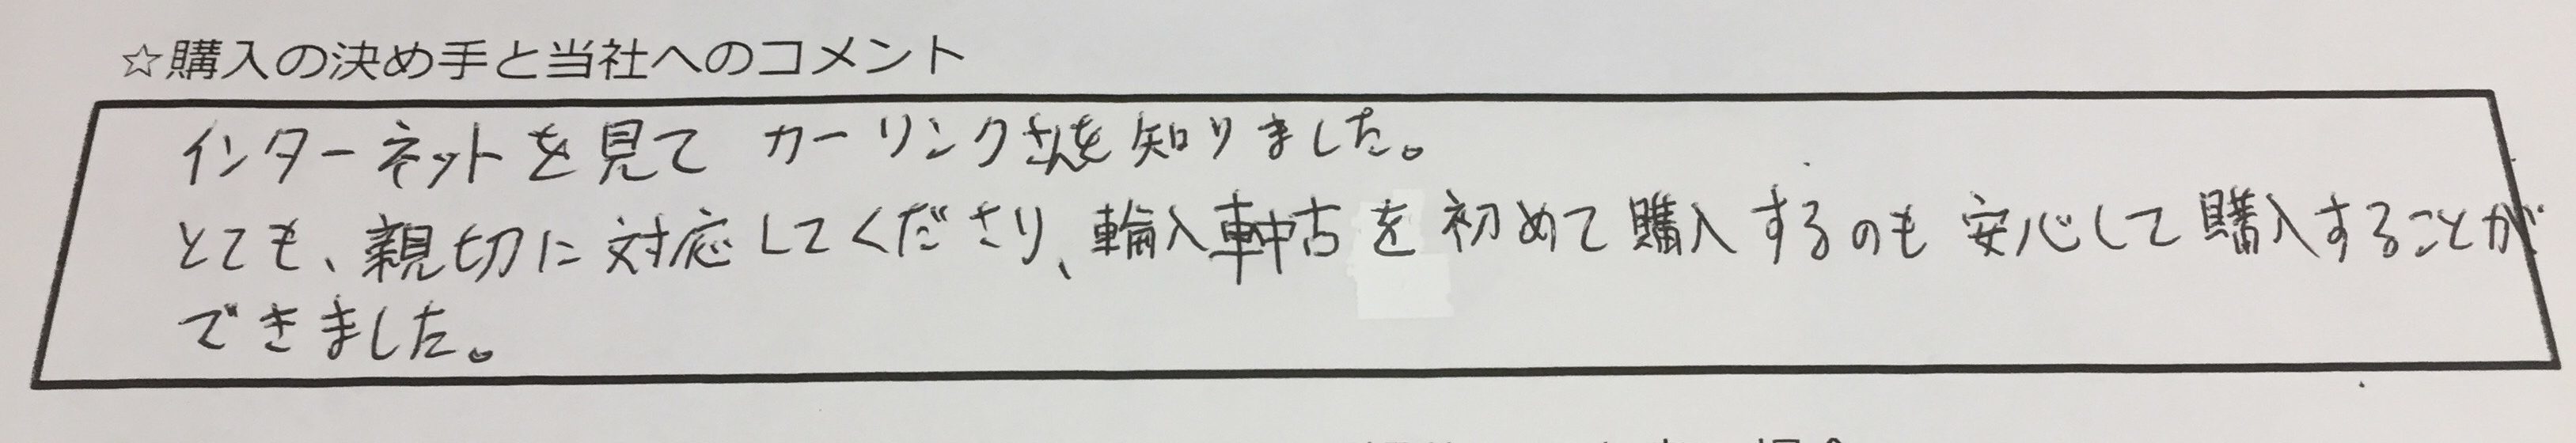 ☆購入の決め手と当社へのコメント
インターネットを見て カーリンクさんを知りました。
とても、親切に対応してくださり、輪入車中古を初めて購入するのも安心して購入することが
できました。